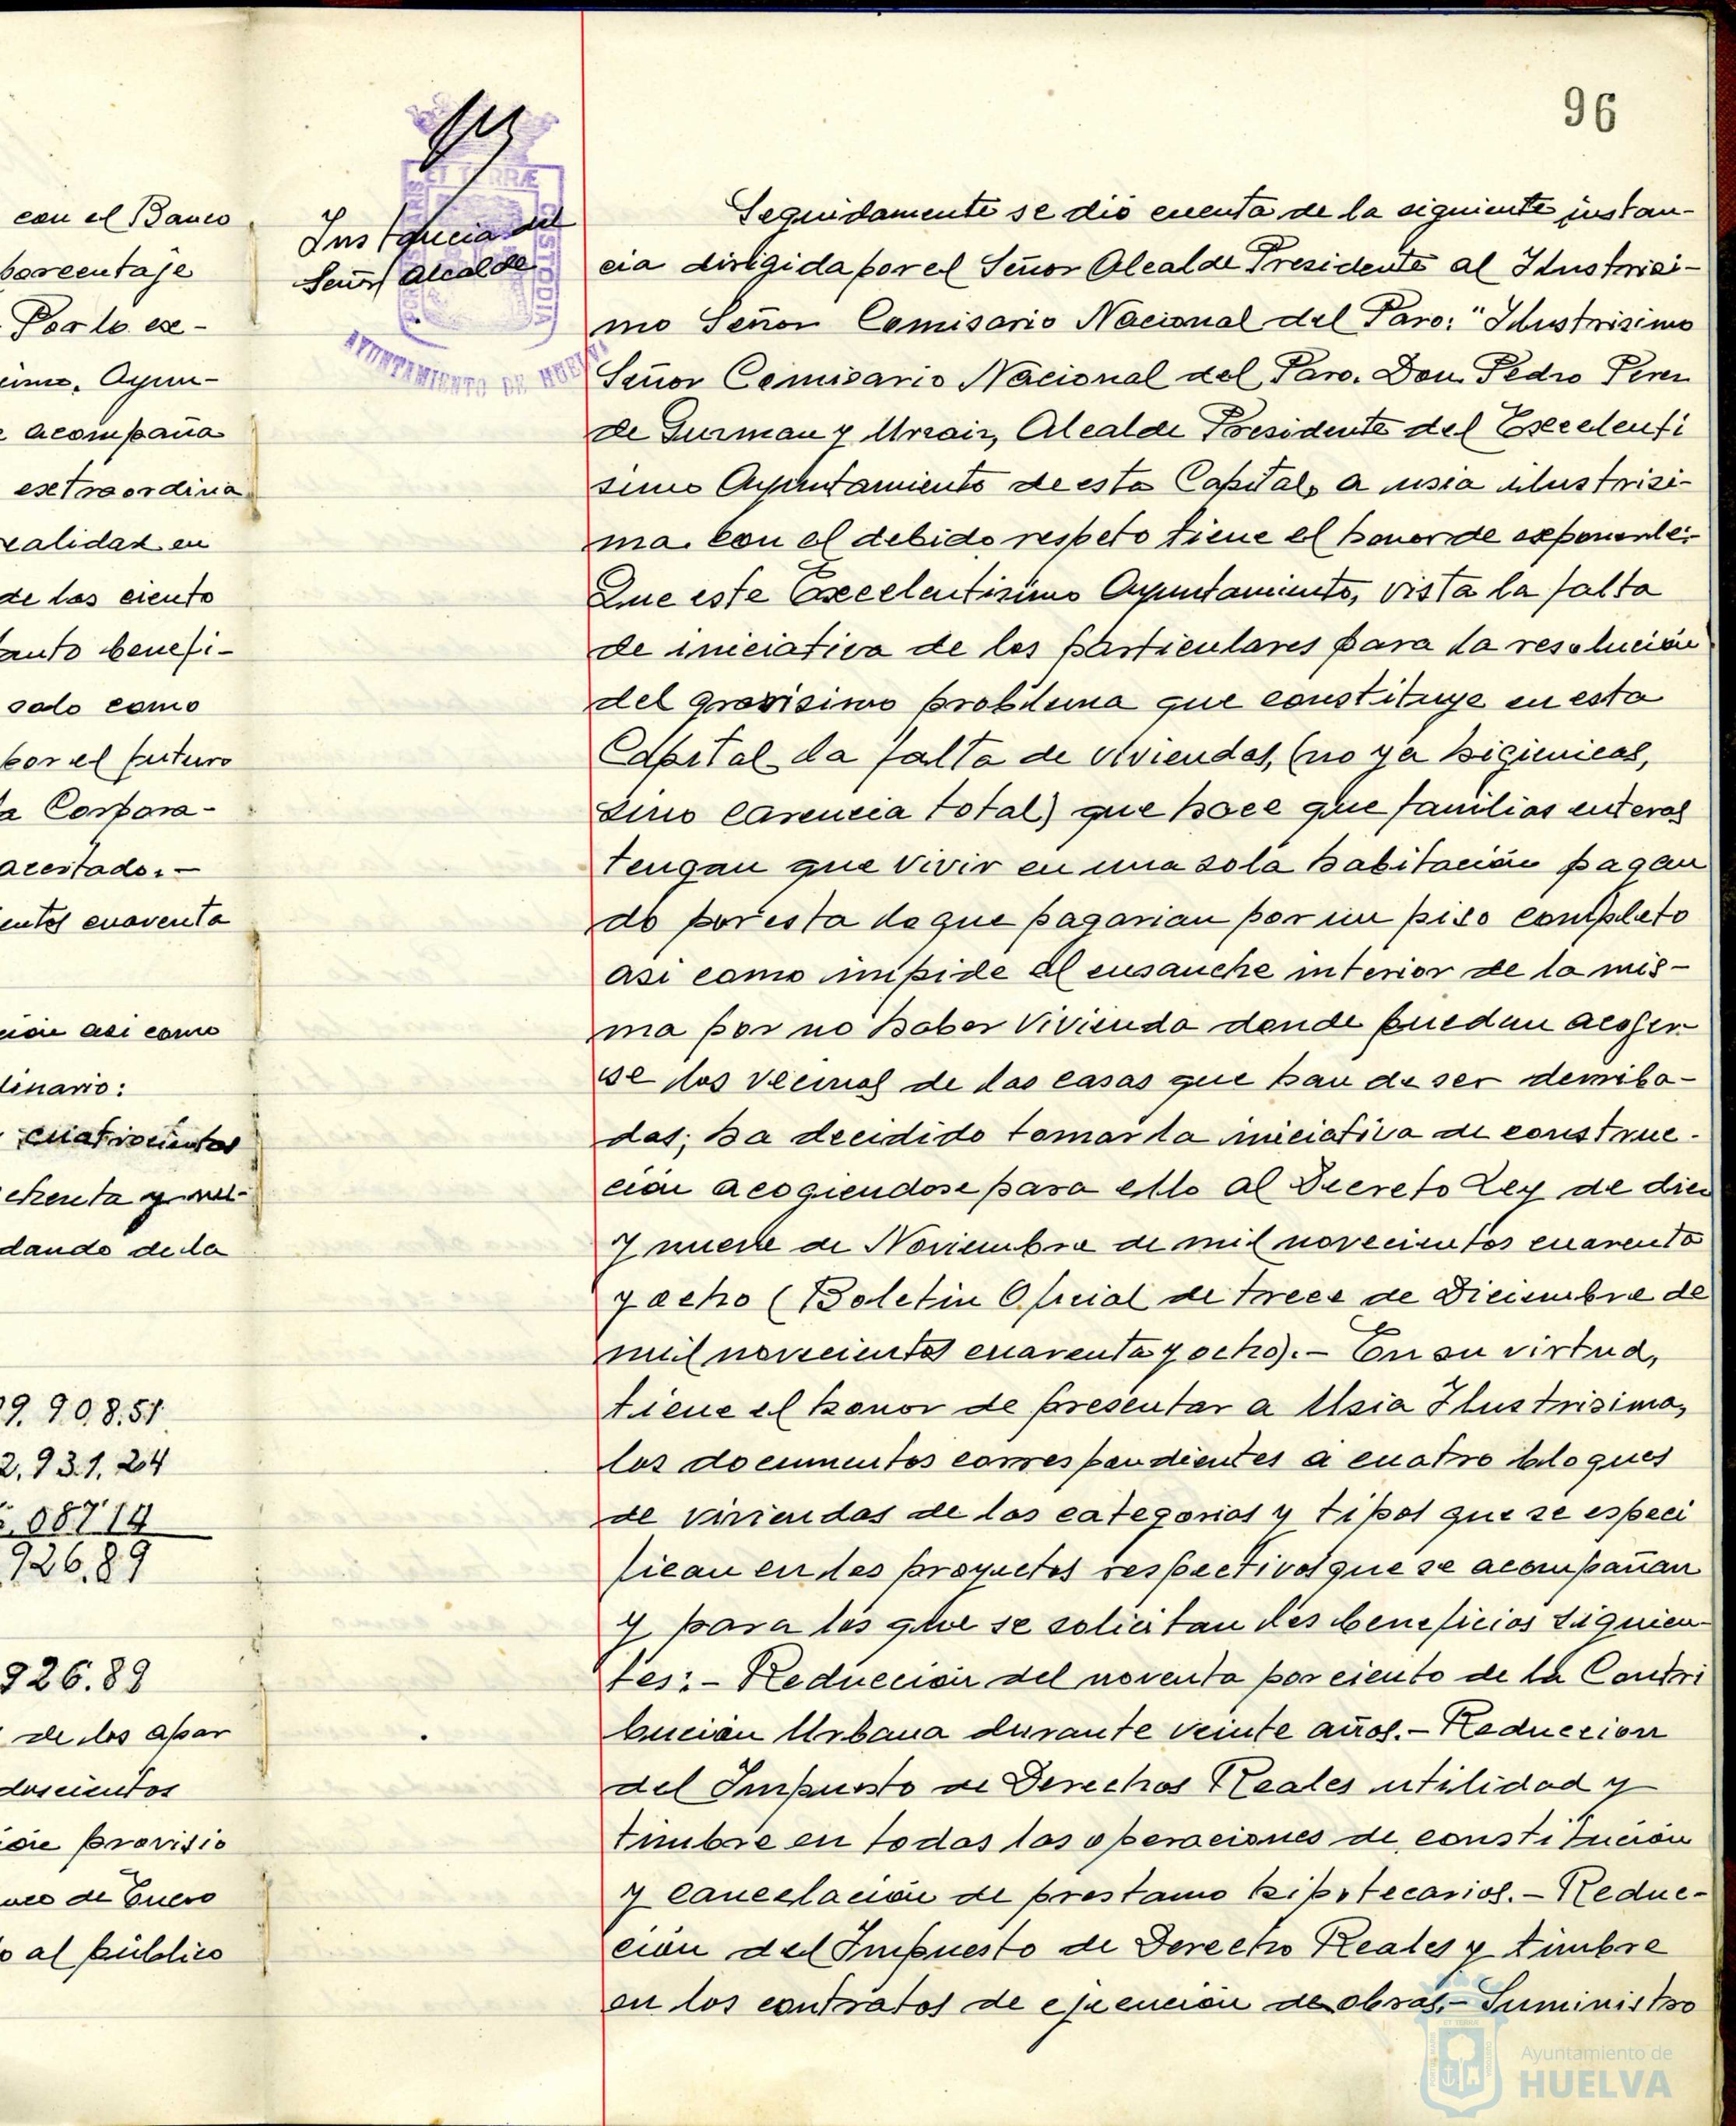 96
con el Banco
porcentaje
Por lo ex-
cimo. Ayun-
e acompaña
esetraordina
calidad en
de las ciento
anto benefi-
solo como
por el futuro
a Corpora-
acertado.-
entos cuarenta
ción asi como
dinario:
cuatrocientos
chenta y nue-
dando de la
9.908.51
2.931.24
08714
926.89
926.89
de los apar
doscientos
ión provisio
nce de Enero
o al público
Instancia del
Señor Alcalde
ET TERRÆ
CUSTODIA
AYUNTAMIENTO DE HUELVA
Seguidamente se dió cuenta de la siguiente instan-
cia dirigida por el Señor Alcalde Presidente al Ilustrisi-
mo Señor Comisario Nacional del Paro: "Ilustrisimo
Señor Comisario Nacional del Paro. Don Pedro Perez
de Guzman y Urzaiz, Alcalde Presidente del Esecelenti
simo Ayuntamiento de esta Capital, a usia ilustrisi-
ma con el debido respeto tiene el honor de exponerle:-
Que este Excelentisimo Ayuntamiento, vista la falta
de iniciativa de los particulares para la resolución
del gravisimo problema que constituye en esta
Capital la falta de viviendas, (no ya higienicas,
sino carencia total) que hace que familias enteras
tengan que vivir en una sola habitación pagan
do por esta lo que pagarian por un piso completo
asi como impide el ensanche interior de la mis-
ma por no haber vivienda donde puedan acojer-
se los vecinos de las casas que han de ser derriba-
das; ha decidido tomar la iniciativa de construc-
ción acogiendose para ello al Decreto Ley de diez
y nueve de Noviembre de mil novecientos cuarenta
y ocho (Boletin Oficial de trece de Diciembre de
mil novecientos cuarenta y ocho).- En su virtud,
tiene el honor de presentar a Usia Ilustrisima,
los documentos correspondientes a cuatro bloques
de viviendas de las categorias y tipos que se especi
fican en los proyectos respectivos que se acompañan
y para los que se solicitan los beneficios siguien-
tes:- Reducción del noventa por ciento de la Contri
bución Urbana durante veinte años.- Reduccion
del Impuesto de Derechos Reales utilidad y
timbre en todas las operaciones de constitución
y cancelación de prestamo hipotecarios.- Reduc-
ción del Impuesto de Derecho Reales y timbre
en los contratos de ejecución de obras.- Suministro
Ayuntamiento de
HUELVA